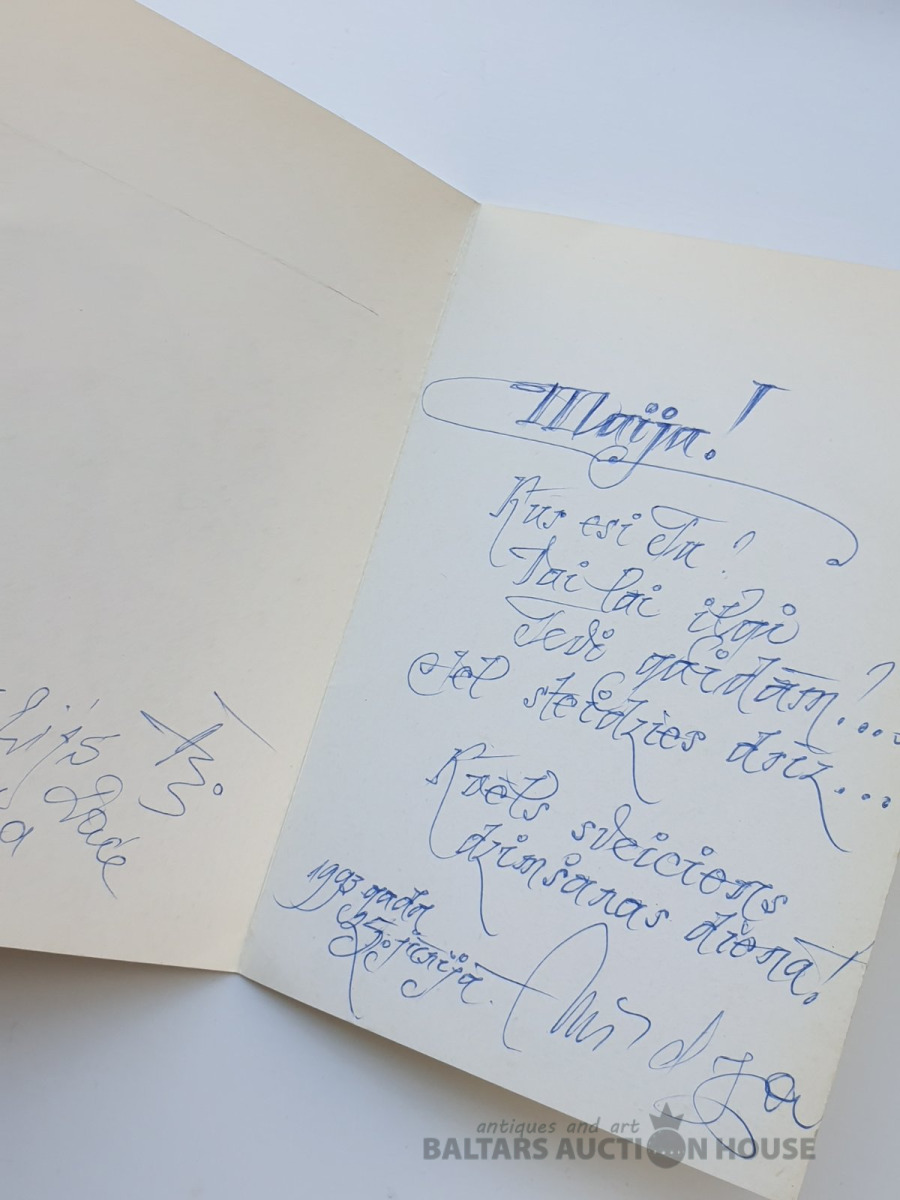 Maija!
Kur esi Tu?
Vai lai ilgi
Tevi gaidām?...
Jel steidzies drīz...
Kvēls sveiciens
dzimšanas dienā!
1993 gada
25. jūnijā.
antiques and art
BALTARS AUCTION HOUSE